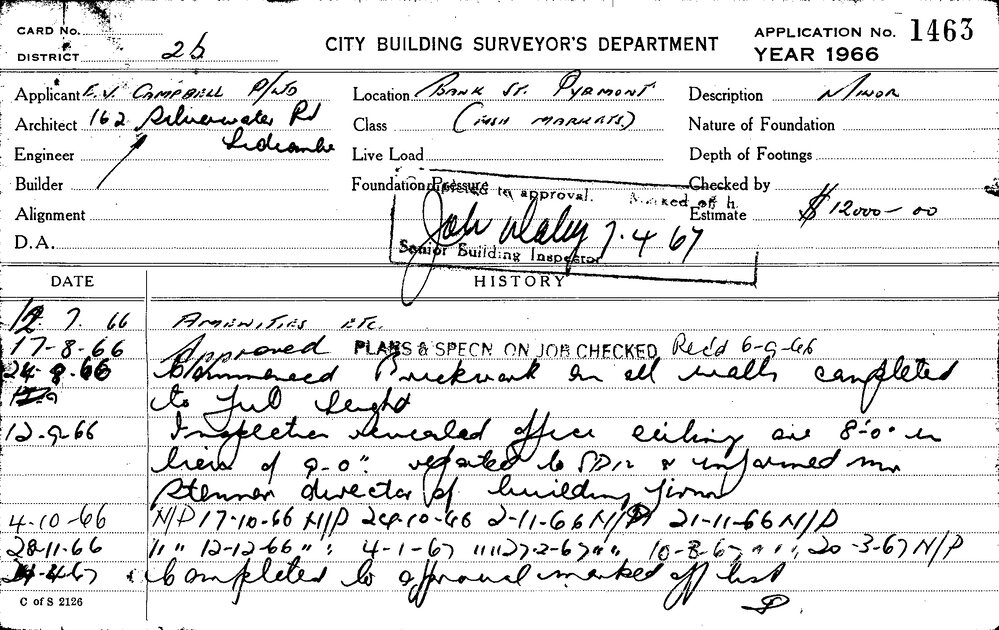 CARD No.
DISTRICT 2b
CITY BUILDING SURVEYOR'S DEPARTMENT
APPLICATION No. 1463
YEAR 1966
Applicant E.V. CAMPBELL P/LTD
Location BANK ST. PYRMONT
Description MINOR
Architect 162 Silverwater Rd
Lidcombe
Class (FISH MARKETS)
Nature of Foundation
Engineer
Live Load
Depth of Footings
Builder
Foundation Pressure
Checked by
to approval. Marked off
Alignment
Estimate $12000-00
7.4.67
D.A.
Senior Building Inspector
DATE
HISTORY
12.7.66 AMENITIES ETC.
17-8-66 Approved PLANS & SPECN ON JOB CHECKED Rec'd 6-9-66
24-8-66 Commenced Brickwork on all walls completed
to full height
12-9-66 Inspection revealed office ceiling are 8'-0" in
lieu of 9-0". reported to & informed Mr
Stenner director of building firm
4-10-66 N/P 17-10-66 N/P 24-10-66 2-11-66 N/P 21-11-66 N/P
28-11-66 " " 12-12-66 " " 4-1-67 " " 27-2-67 " " 10-3-67 " " 20-3-67 N/P
Completed to approval marked off list
C of S 2126